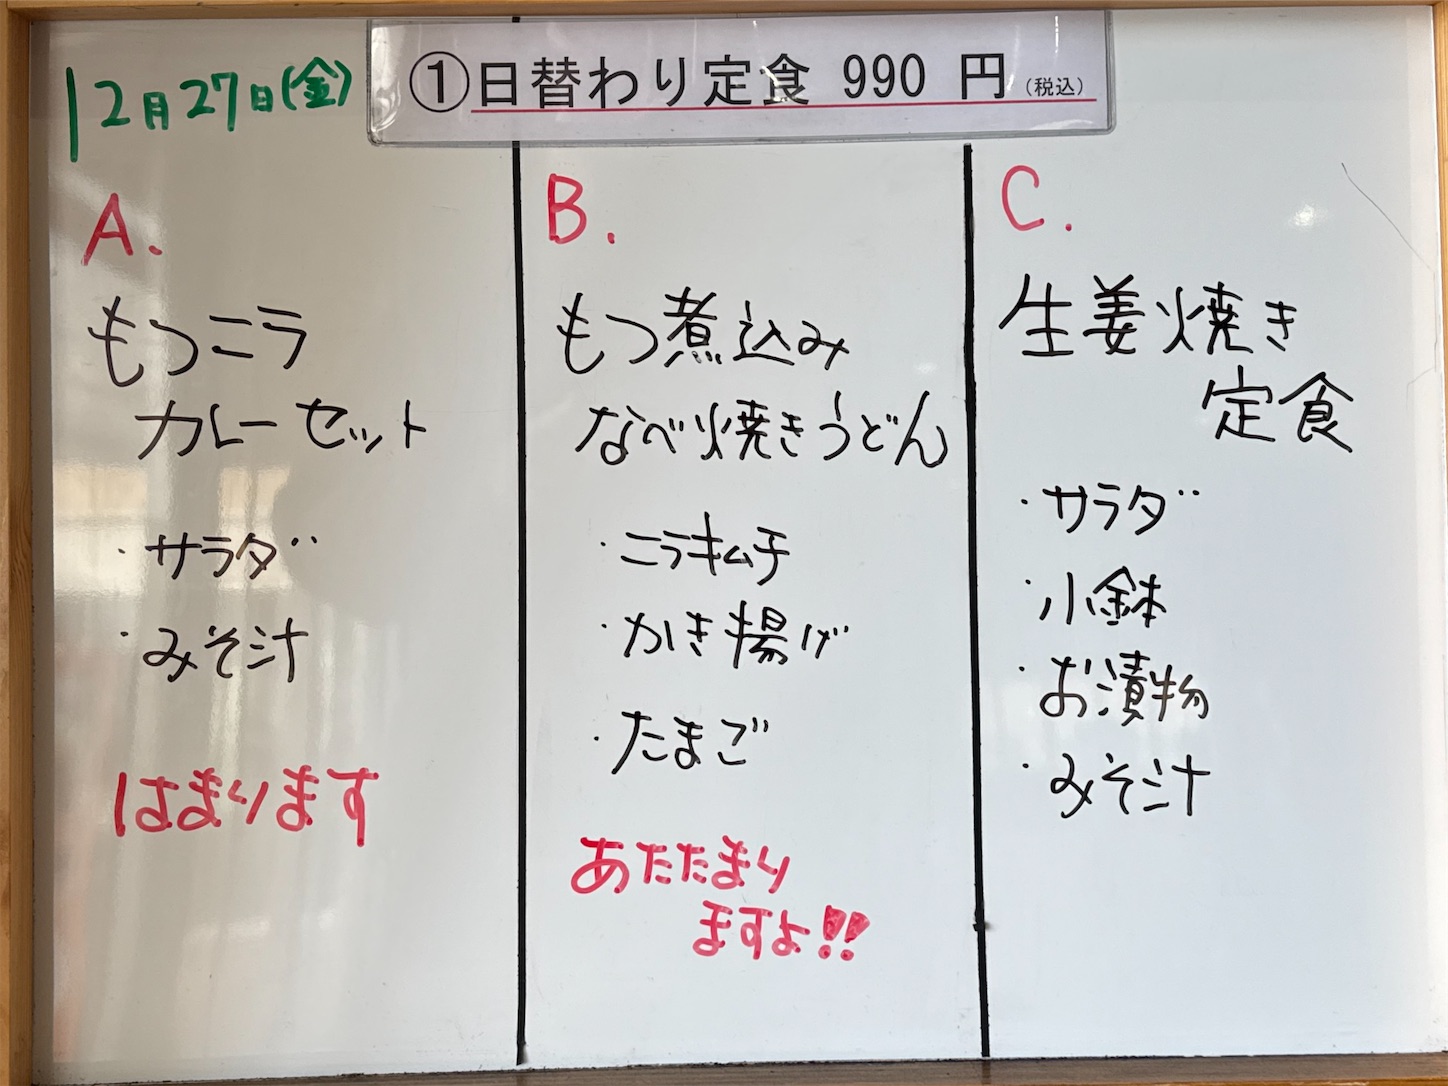 12月27日(金)
①日替わり定食 990 円(税込)
A.
もつニラ
カレーセット
・サラダ
・みそ汁
はまります
B.
もつ煮込み
なべ焼きうどん
・ニラキムチ
・かき揚げ
・たまご
あたたまり
ますよ!!
C.
生姜焼き
定食
・サラダ
・小鉢
・お漬物
・みそ汁